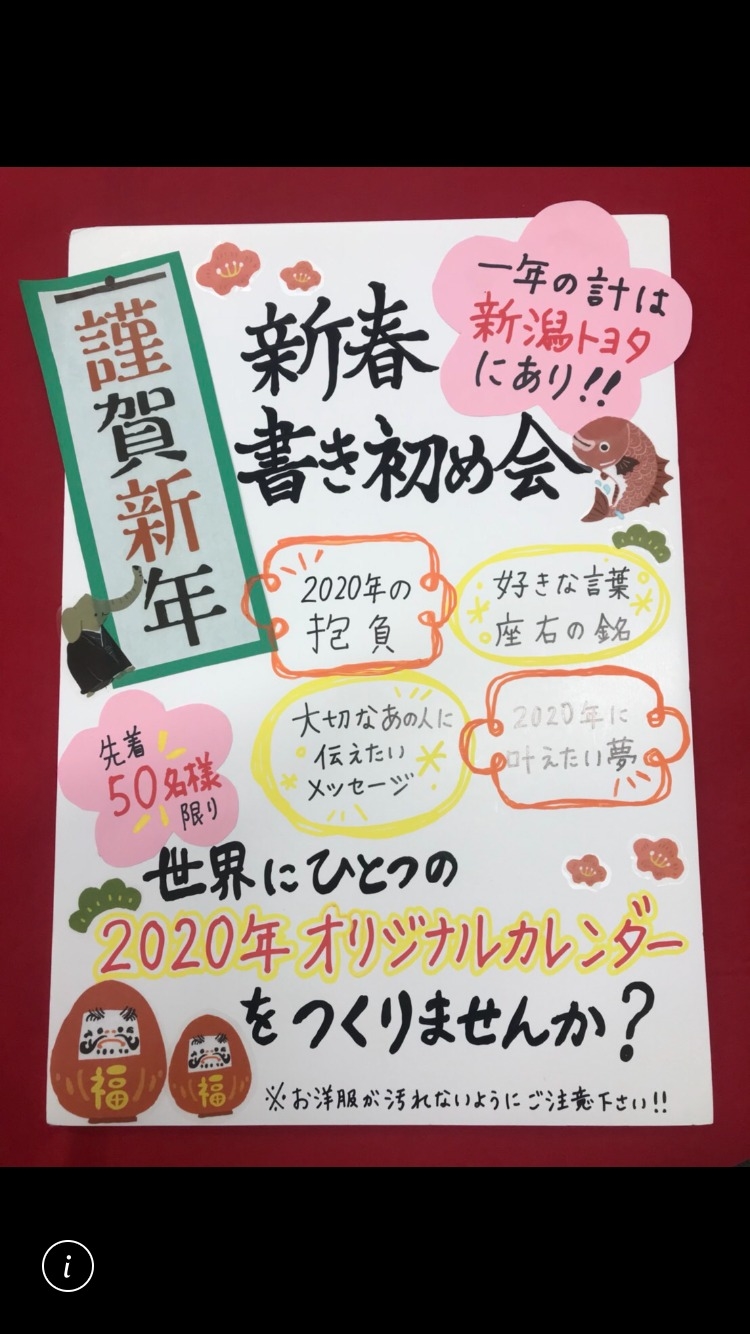 謹賀新年
一年の計は
新潟トヨタ
にあり!!
新春
書き初め会
2020年の
抱負
好きな言葉
座右の銘
大切なあの人に
伝えたい
メッセージ
2020年に
叶えたい夢
先着
50名様
限り
世界にひとつの
2020年オリジナルカレンダー
をつくりませんか?
福
福
※お洋服が汚れないようにご注意下さい!!
i